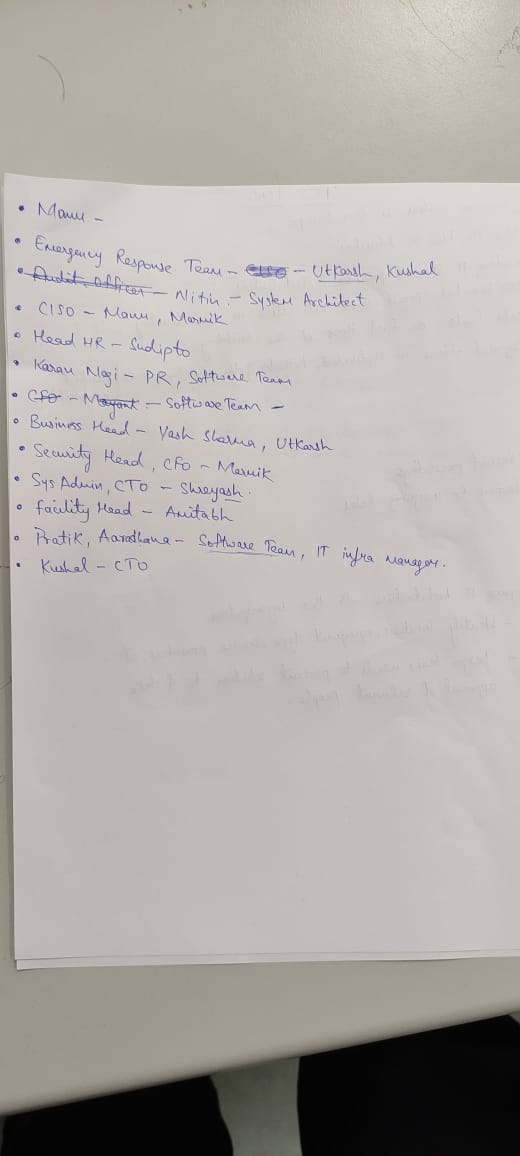 • Manu -
• Emergency Response Team - - Utkarsh, Kushal
• Audit officer - Nitin - System Architect
• CISO - Manu, Marnik
• Head HR - Sudipto
• Karan Negi - PR, Software Team
• CFO - Mayank - Software Team -
• Business Head - Yash Sharma, Utkarsh
• Security Head, CFO - Marnik
• Sys Admin, CTO - Shreyash.
• Facility Head - Amitabh
• Pratik, Aaradhana - Software Team, IT infra Manager.
• Kushal - CTO